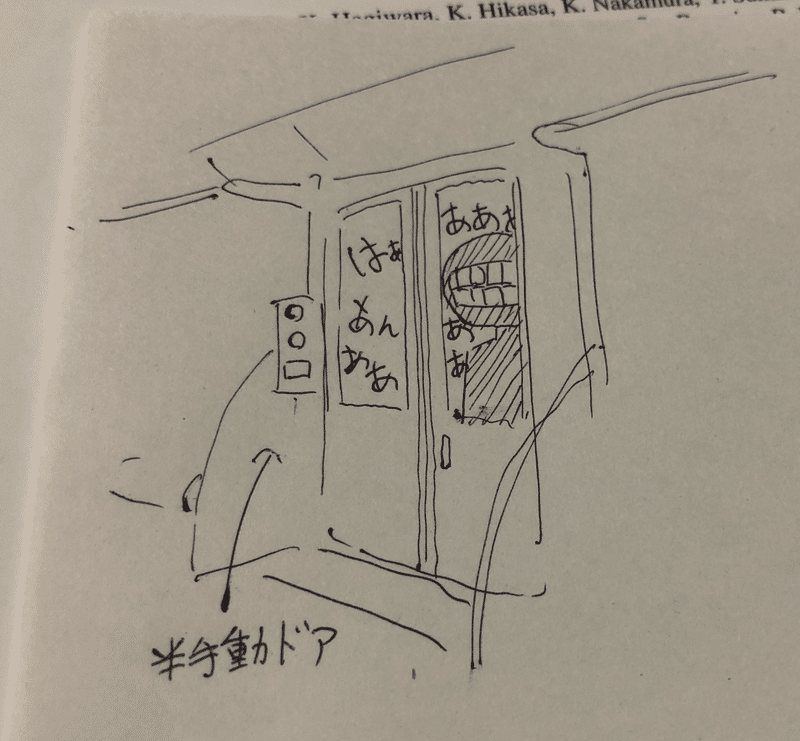 Hagiwara, K. Hikasa, K. Nakamura,
はぁ
あん
ああ
ああ
あ
あ
半手動ドア